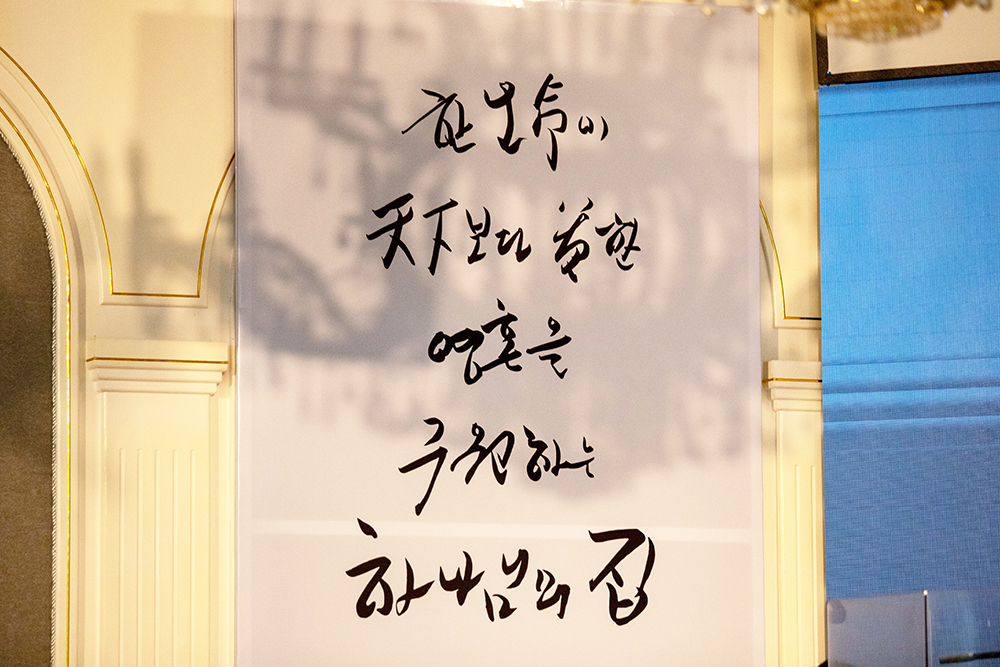 한 生命이
天下보다 귀한
영혼을
구원하는
하나님의 집